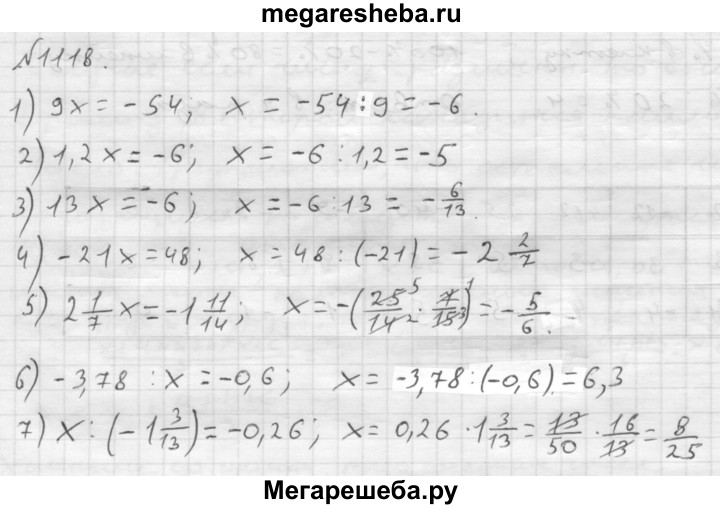 megaresheba.ru
№1118.
1) 9x = -54; x = -54 : 9 = -6.
2) 1,2x = -6; x = -6 : 1,2 = -5
3) 13x = -6; x = -6 : 13 = -6/13
4) -21x = 48; x = 48 : (-21) = -2 2/7
5) 2 1/7 x = -1 11/14; x = -(25⁵/14₂ · 7¹/15₃) = -5/6.
6) -3,78 : x = -0,6; x = -3,78 : (-0,6) = 6,3
7) x : (-1 3/13) = -0,26; x = 0,26 · 1 3/13 = 13/50 · 16/13 = 8/25
Мегарешеба.ру